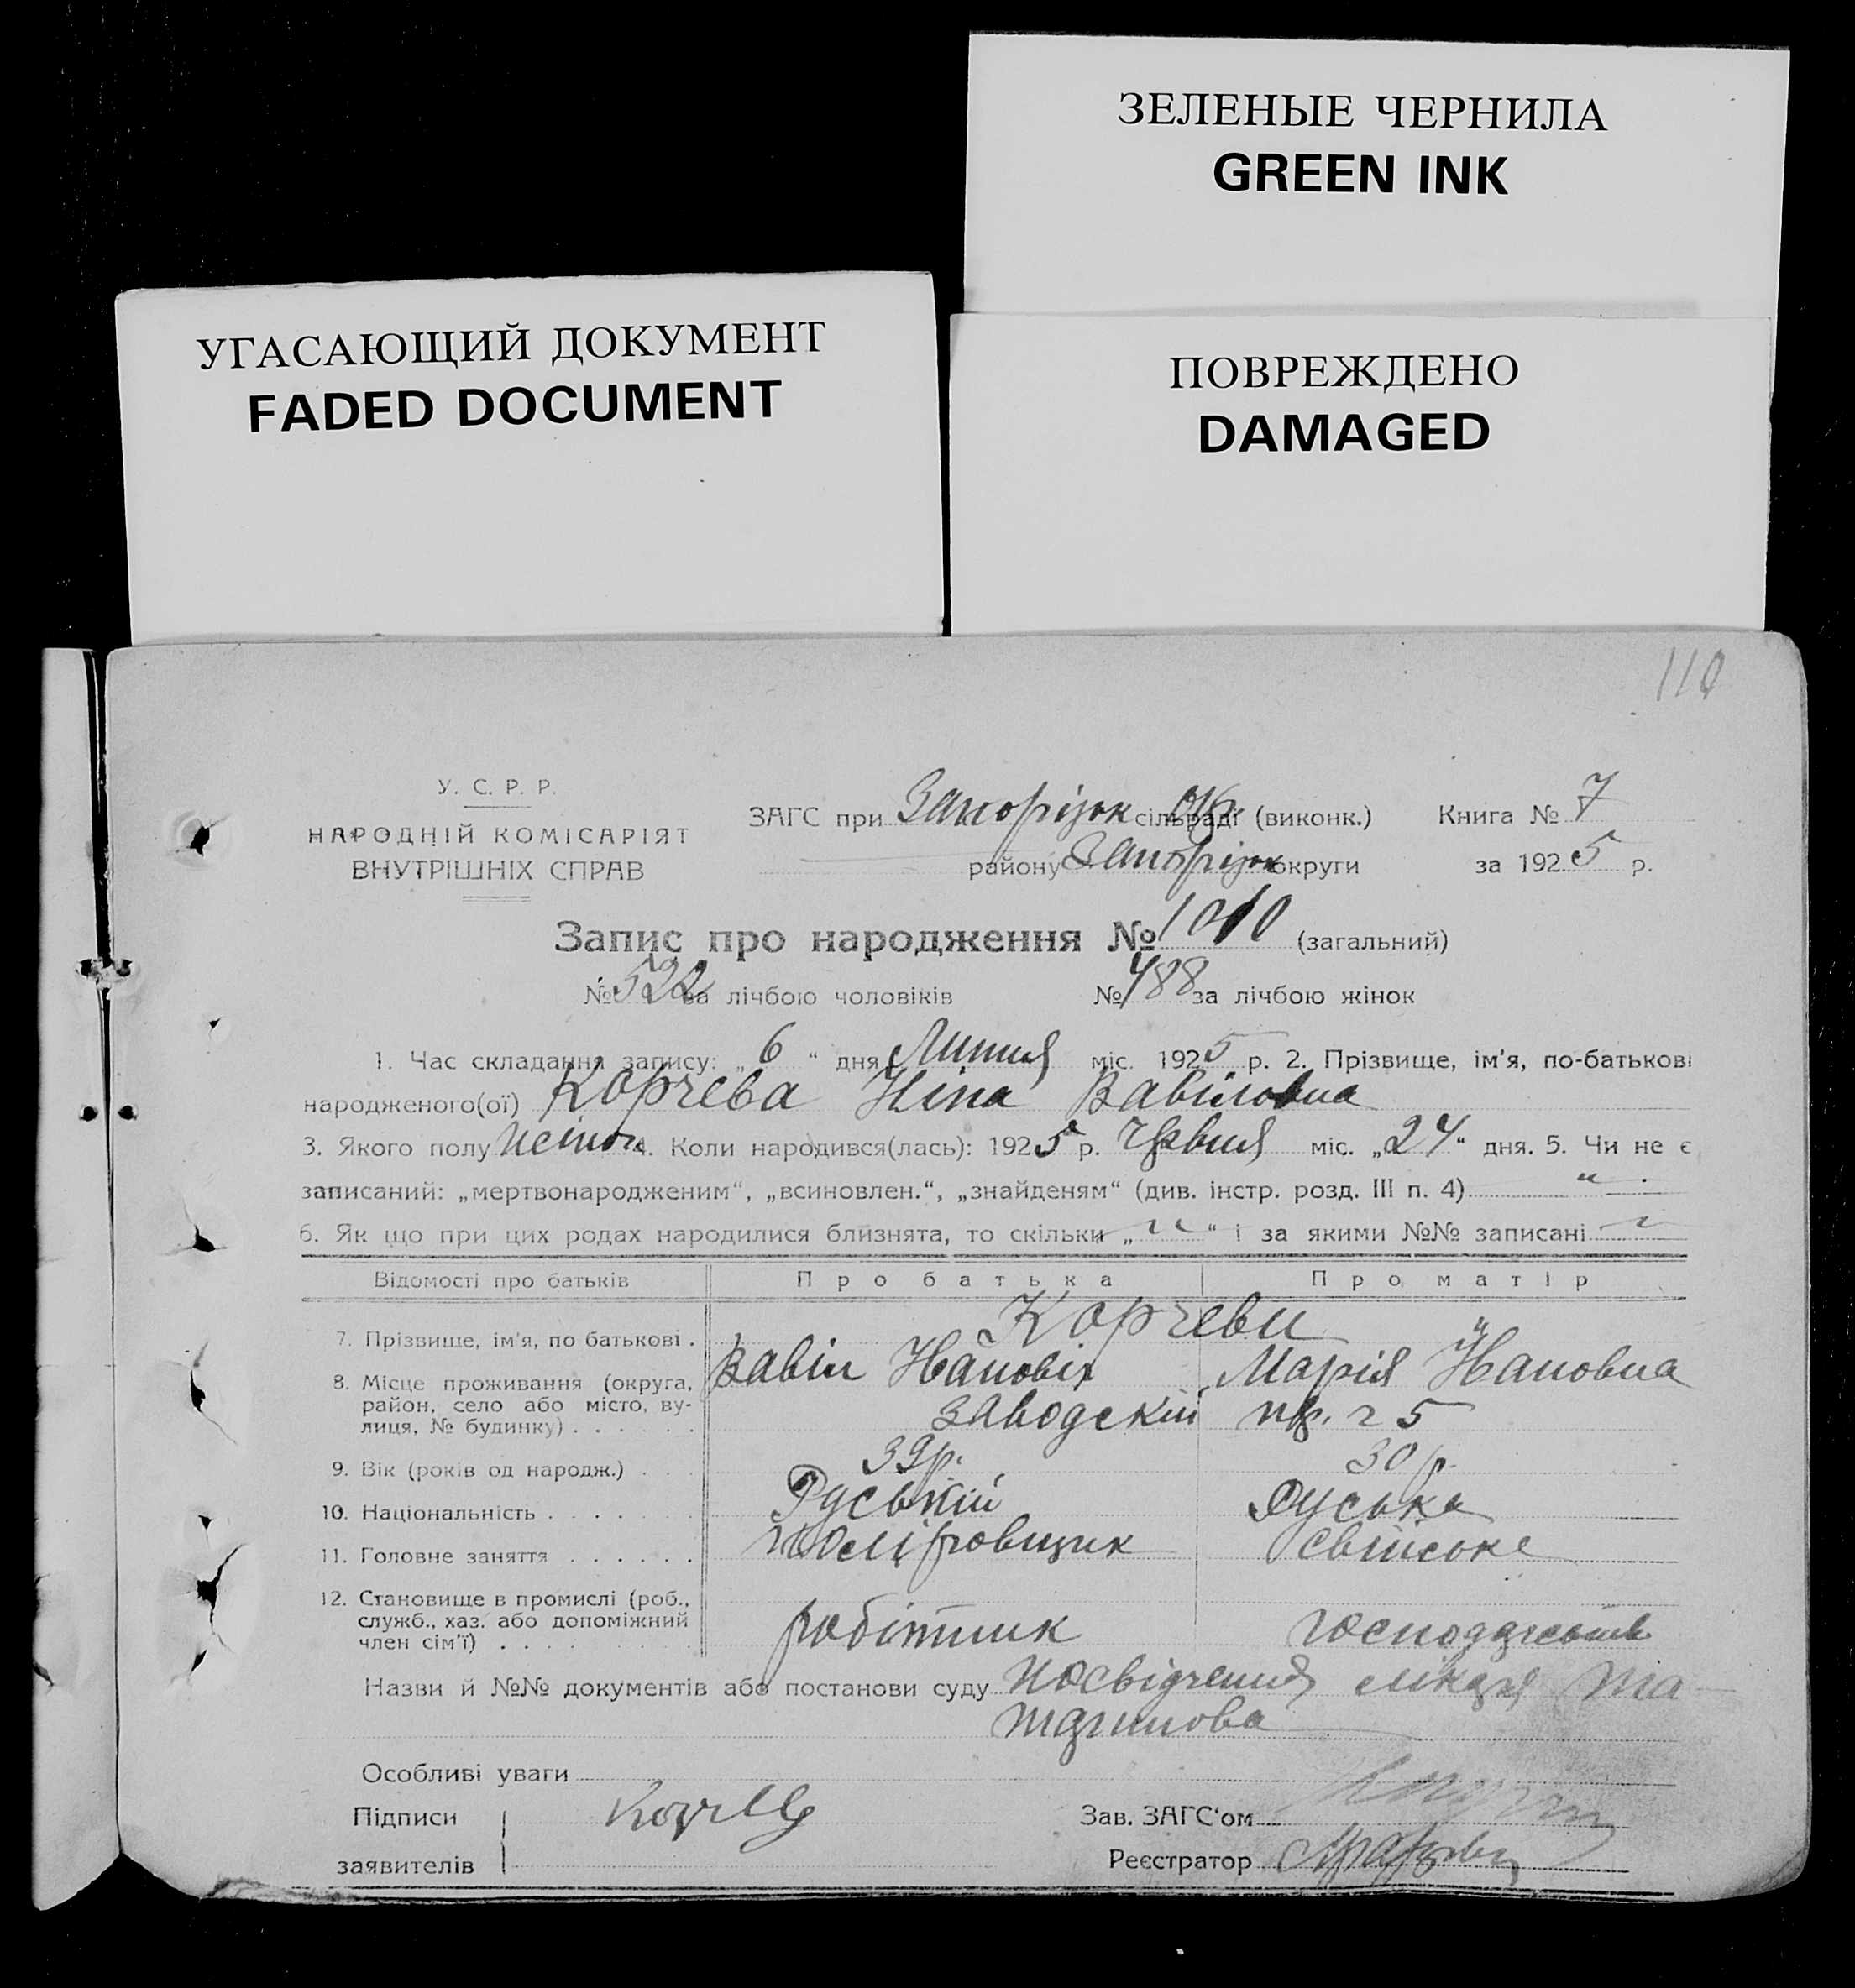 ЗЕЛЕНЫЕ ЧЕРНИЛА
GREEN INK
УГАСАЮЩИЙ ДОКУМЕНТ
FADED DOCUMENT
ПОВРЕЖДЕНО
DAMAGED
110
У. С. Р. Р.
НАРОДНІЙ КОМІСАРІЯТ
ВНУТРІШНІХ СПРАВ
ЗАГС при Запоріжк сільраді (виконк.) Книга № 7
району Запоріжк округи за 1925 р.
Запис про народження № 1010 (загальний)
№ 522 за лічбою чоловіків № 488 за лічбою жінок
1. Час складання запису: „6“ дня Липня міс. 1925 р. 2. Прізвище, ім'я, по-батькові
народженого(ої) Корчева Ніна Вавіловна
3. Якого полу 4. Коли народився(лась): 1925 р. Червня міс. „24“ дня. 5. Чи не є
записаний: „мертвонародженим“, „всиновлен.“, „знайденям“ (див. інстр. розд. III п. 4) "
6. Як що при цих родах народилися близнята, то скільки „ “ і за якими №№ записані
Відомості про батьків Про батька Про матір
7. Прізвище, ім'я, по батькові . Корчеви
Вавіл Йванович Марія Йвановна
8. Місце проживання (округа,
район, село або місто, ву-
лиця, № будинку) . . . . . . Заводскій 5
9. Вік (років од народж.) . . . 39р. 30 р.
10. Національність . . . . . Руський Руська
11. Головне заняття . . . . . .
12. Становище в промислі (роб.,
служб., хаз. або допоміжний
член сім'ї) . . . . . . . . . робітник
Назви й №№ документів або постанови суду Посвідчення лікаря
Особливі уваги
Підписи
заявителів
Зав. ЗАГС'ом
Реєстратор